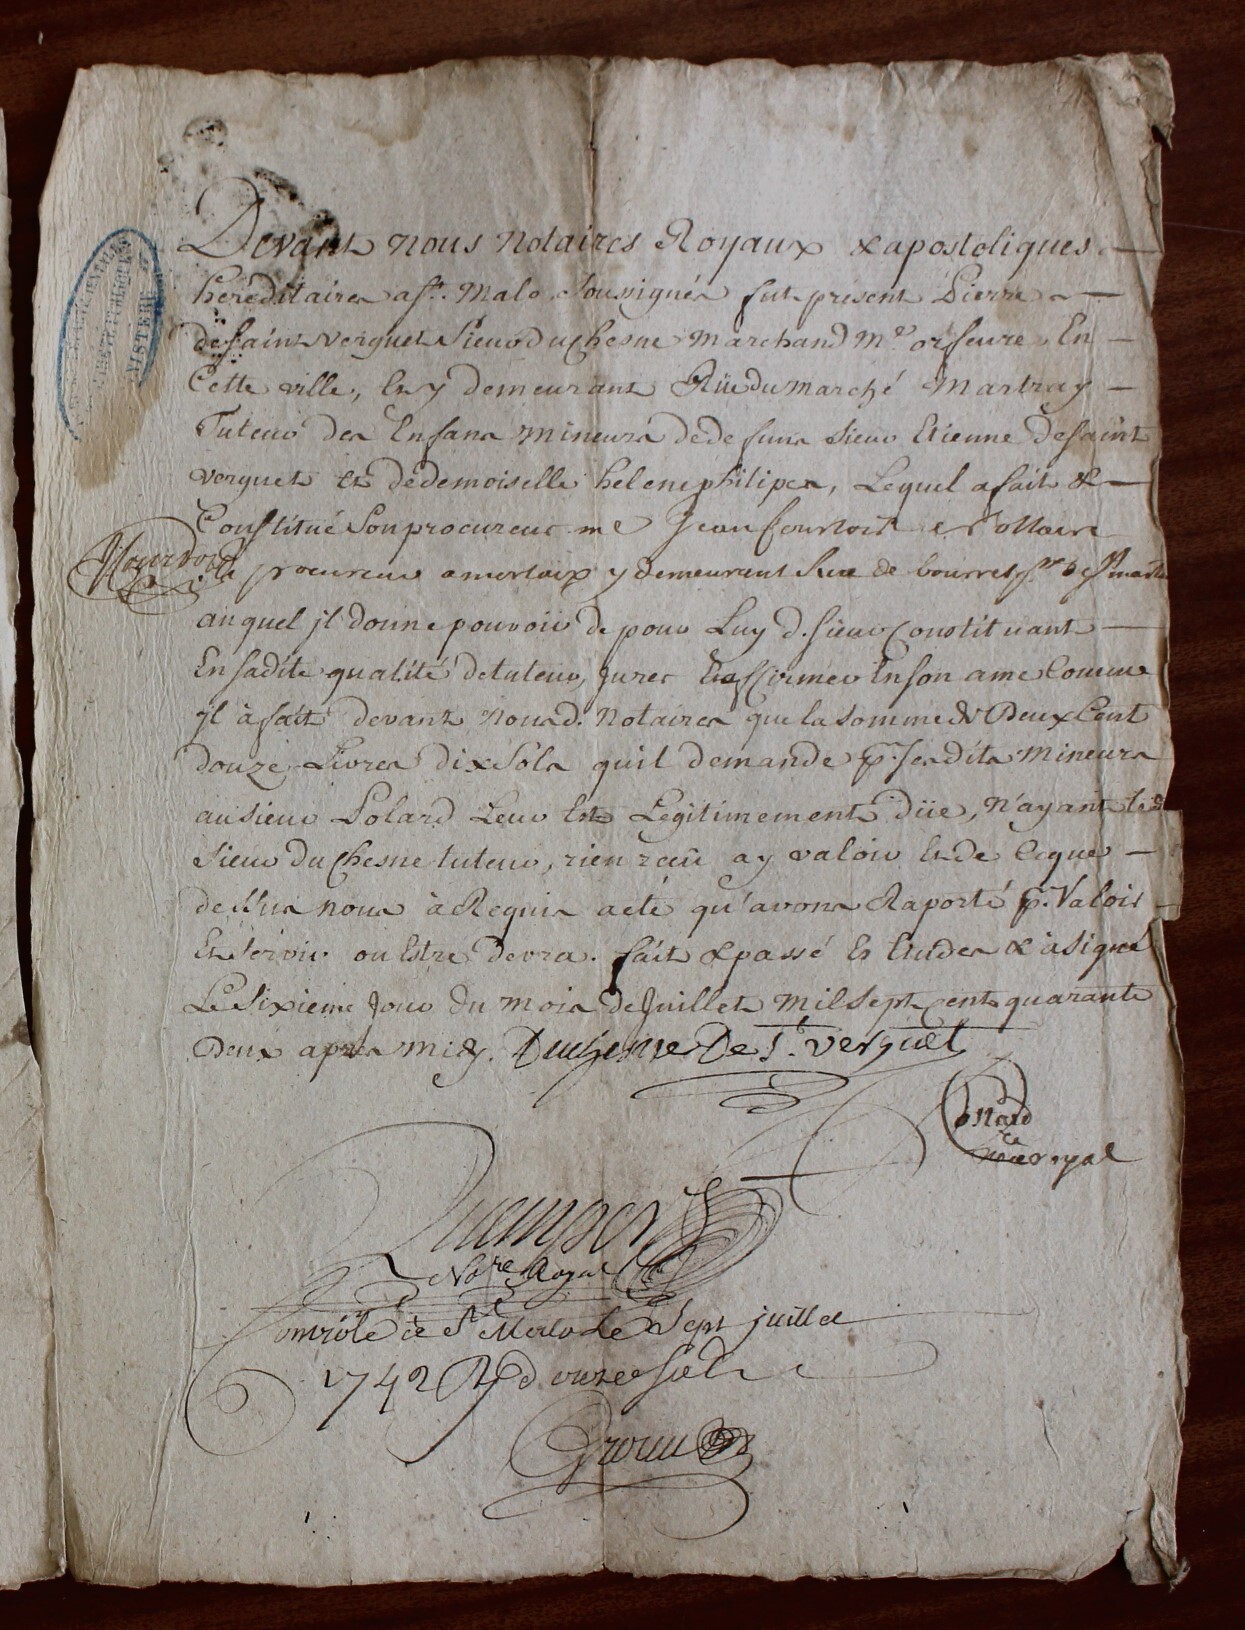 Devant nous Notaires Royaux & apostoliques
hereditaires a St. Malo, Sousignés fut présent Pierre
de saint verguet Sieur du Chesne Marchand Me orfeuvre En
Cette ville, Et y demeurant Rüe du marché Martray
Tuteur des Enfans Mineurs de defunt Sieur Etienne de saint
verguet et de demoiselle helene philipes, Lequel a fait &
Constitué Son procureur me Jean fourdoit
procureur a morlaix y demeurant Rue de bourret St martin
auquel jl donne pouvoir de pour Luy d. sieur Constituant
En sadite qualité de tuteur, Jurer Et affirmer En son ame Comme
jl à fait devant Nous d. Notaires que la somme de Deux Cent
douze Livres dix Sols quil demande p. sesdits Mineurs
au sieur Polard Leur Est Legitimement düe, N'ayant led
Sieur du Chesne tuteur, rien recû a y valoir Et de Ceque
dessus nous à Requis acte qu'avons Raporté p. Valoir
Et servir ou Estre devra. fait & passé Es Etudes & à signé
Le Sixieme Jour du mois de Juillet Mil Sept cent quarante
Deux apres midy. Duchesne De St. verguet
royal
Quemper
Nore Royal
Controlé a St Malo Le Sept juillet
1742 R d douze sols